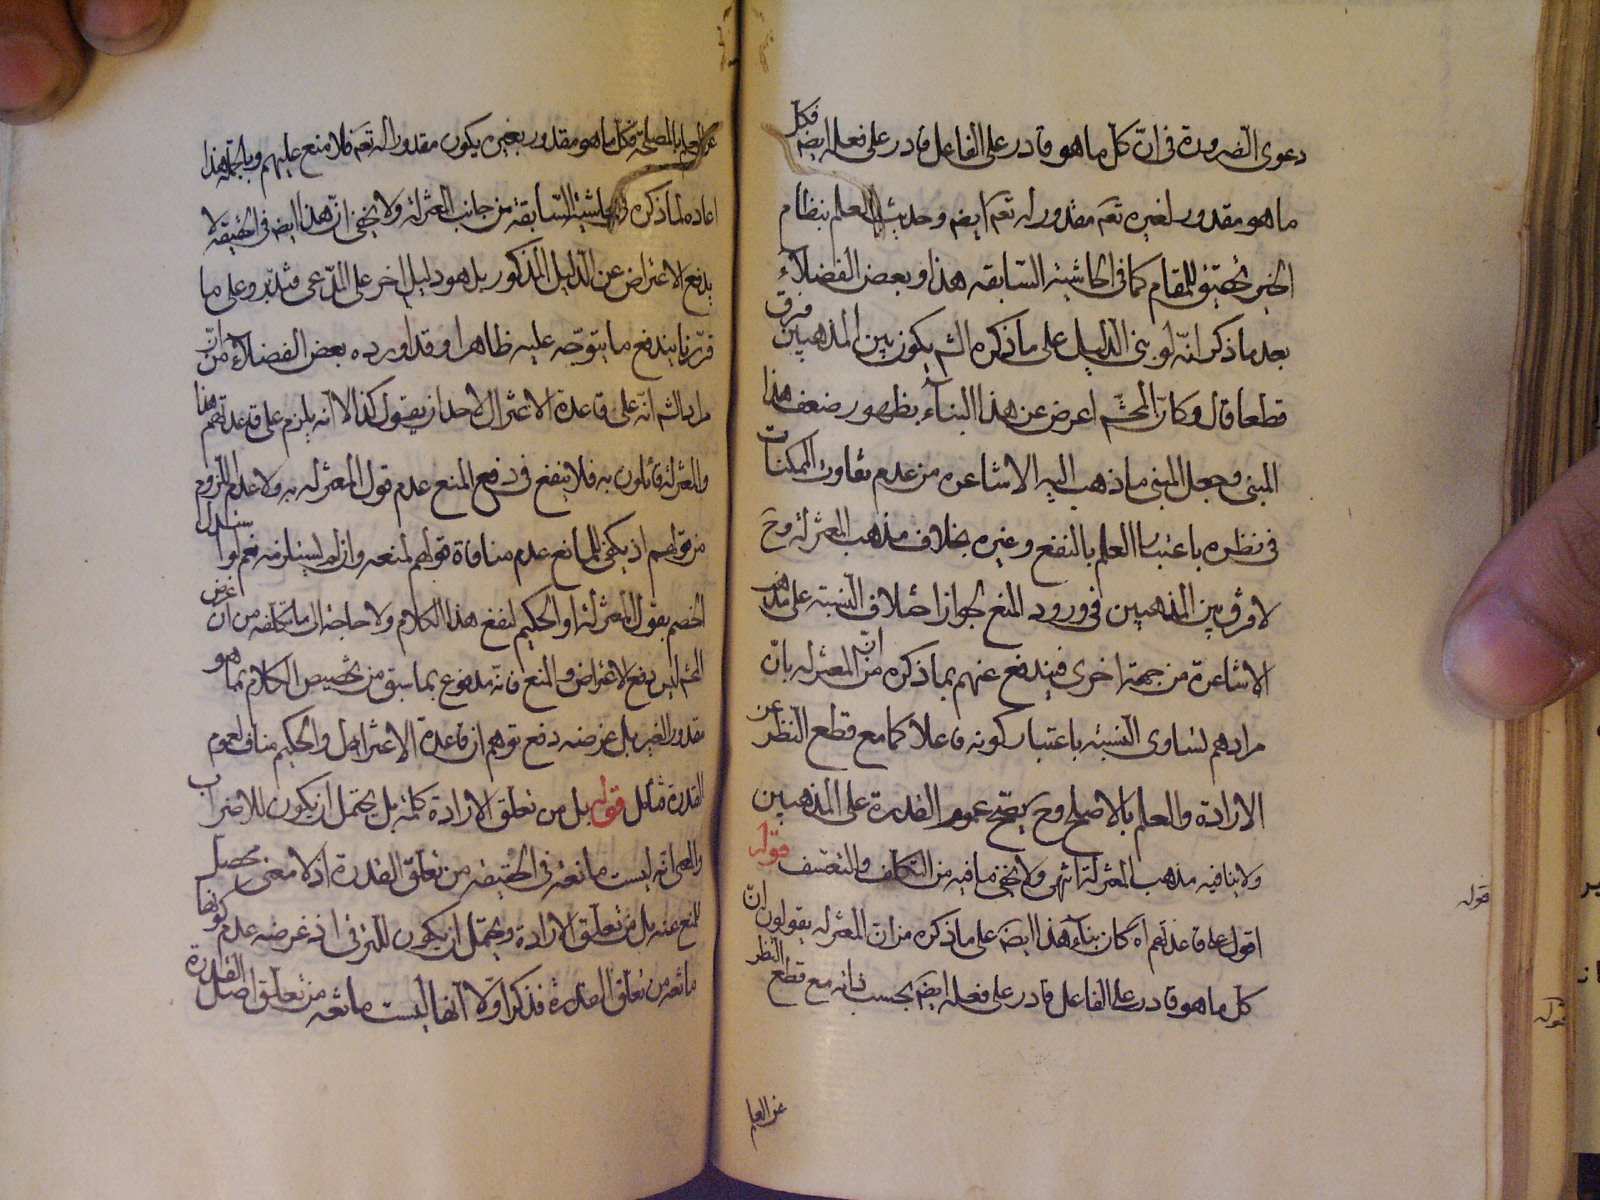 دعوى الضرورة فى انّ كلّ ما هو قادر على الفاعل قادر على فعله ايضم فكل
ما هو مقدور لغيره تعم مقدور له تعم ايضم وحديث العلم بنظام
الخير تحقيق للمقام كما فى الحاشية السابقه هذا وبعض الفضلآء
بعد ما ذكر انّه لو بنى الدليل على ما ذكره الشم يكون بين المذهبين فرق
قطعا قال وكانّ المحشم اعرض عن هذا البنآء بظهور ضعف هذا
المبنى وجعل المبنى ما ذهب اليه الاشاعره من عدم تفاوت الممكنات
فى نظره باعتبار العلم بالنفع وغيره بخلاف مذهب المعتزلة وح
لا فرق بين المذهبين فى ورود المنع لجواز اختلاف النسبة على مذهب
الاشاعرة من جهة اخرى فيندفع عنهم بما ذكره من انّ المعتزله بانّ
مرادهم تساوى النسبة باعتبار كونه فاعلا كما مع قطع النظر عن
الارادة والعلم بالاصلح وح يتضح عموم القدرة على المذهبين
ولا ينافيه مذهب المعتزلة انتهى ولا يخفى ما فيه من التكلف والتعسف قوله
اقول على قاعدتهم اه كان بنآء هذا ايضم على ما ذكره من ان المعتزله يقولون انّ
كل ما هو قادر على الفاعل قادر على فعله ايضم بحسب ذاته مع قطع النظر
عن العلم
قوله
عن العلم بالمصلحة فكل ما هو مقدور بغيره يكون مقدورا له تعم فلا منع عليهم وبالجملة هذا
اعاده لما ذكره فى الحاشية السابقة من جانب المعتزلة ولا يخفى انّ هذا ايضم فى الحقيقة لا
يدفع الاعتراض عن الدليل المذكور بل هو دليل اخر على المدّعى فتدبّر وعلى ما
قرّرنا يندفع ما يتوجّه عليه ظاهرا وقد اورده بعض الفضلاء من انّ
مراد الشم انّه على قاعدة الاعتزال لاحد ان يقول كذا لا انّه يلزم على قاعدتهم هذا
والمعتزلة قائلون به فلا ينفع فى دفع المنع عدم قول المعتزله به ولا عدم لزوم
من قولهم اذ يكفى للمانع عدم منافاة قولهم لمنعه وان لم يستلزمه نعم لو استدل
الخصم بقول المعتزلة او الحكيم لنفع هذا الكلام ولا حاجة الى ما تكلفه من ان غرض
المحشم ليس دفع الاعتراض والمنع فانّه مدفوع بما سبق من تخصيص الكلام بما هو
مقدور الغير بل غرضه دفع توهم ان قاعدة الاعتزال والحكيم مناف لعموم
القدرة فتامّل قوله بل من تعلق الارادة كلمة بل يحتمل ان يكون للاضراب
والمعنى انّه ليست مانعة فى الحقيقه من تعلق القدرة اذ لا معنى
للمنع عنه بل من تعلق الارادة ويحتمل ان يكون للترقى اذ غرضه عدم كونها
مانعه من تعلق القدرة فذكر اوّلا انّها ليست مانعه من تعلق اصل القدرة